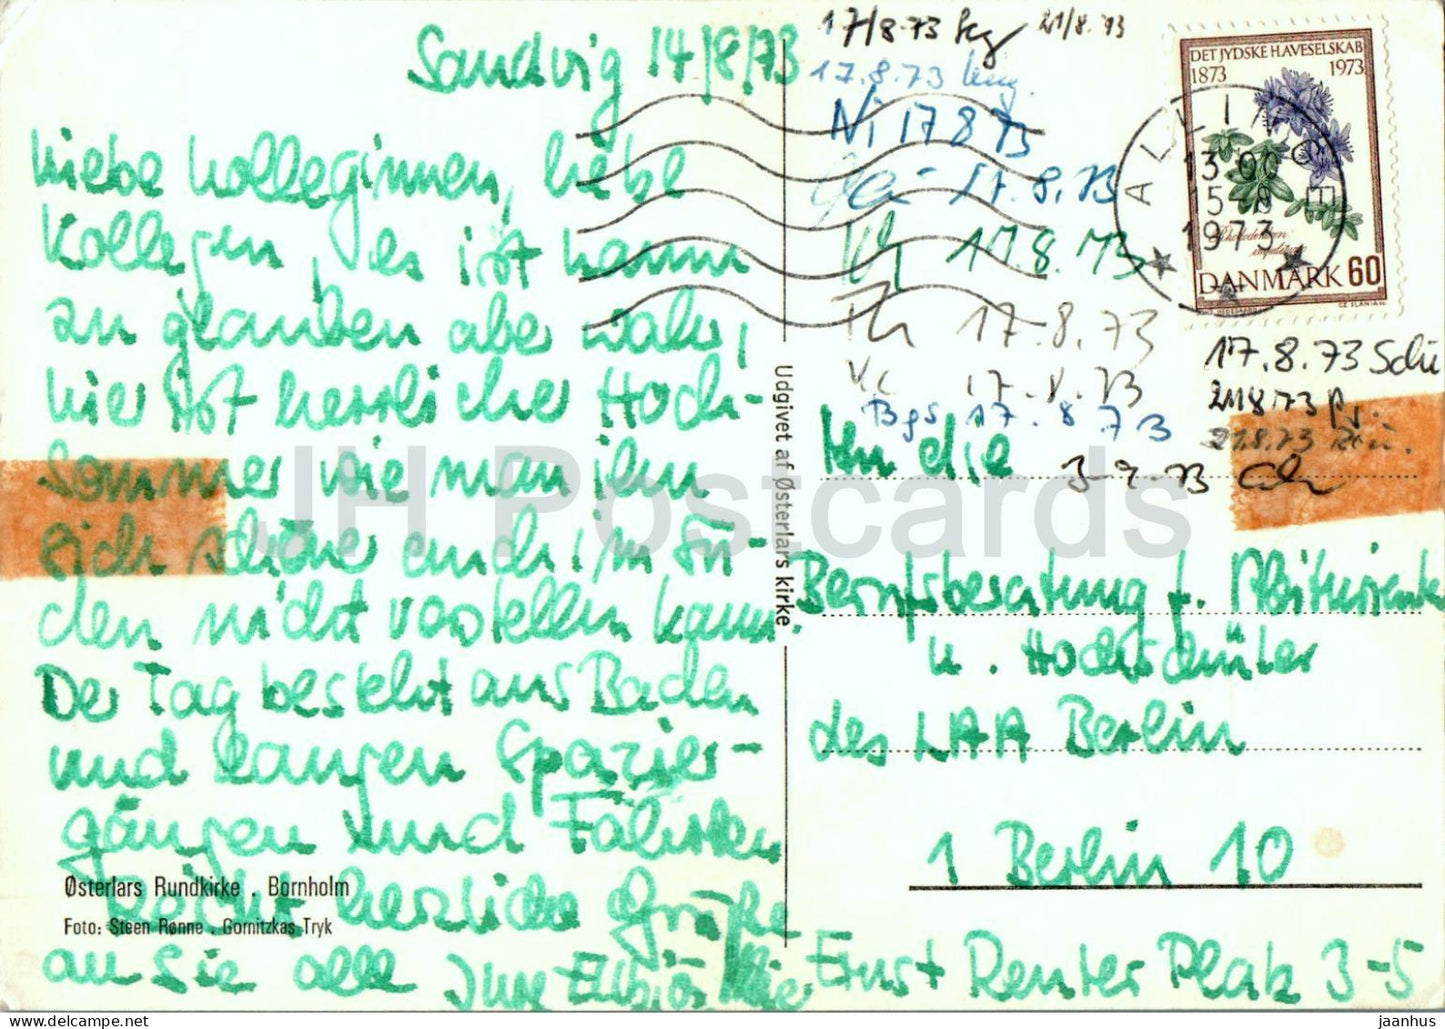 Sandvig 14/8/73
Liebe Kolleginnen, liebe
Kollegen, es ist kaum
zu glauben aber wahr,
hier ist herrlicher Hoch-
sommer wie man ihn
sich schöner auch im Sü-
den nicht vorstellen kann.
Der Tag besteht aus Baden
und langen Spazier-
gängen und Fahrten
Recht herzliche Grüße
an Sie alle Ihre
Østerlars Rundkirke . Bornholm
Foto: Steen Rønne . Gornitzkas Tryk
Udgivet af Østerlars kirke
17/8.73 21/8.73
17.8.73
Ni 17 8 73
17.8.73
17.8.73
17.8.73
17.8.73
Bgs 17.8 73
DET JYDSKE HAVESELSKAB
1873 1973
DANMARK 60
ALLINGE
13.00
15-8
1973
17.8.73 Schu
21.8.73
21.8.73
3-9-73
An die
Berufsberatung f. Abiturienten
u. Hochschüler
des LAA Berlin
1 Berlin 10
Ernst Reuter Platz 3-5
JH Postcards
jaanhus